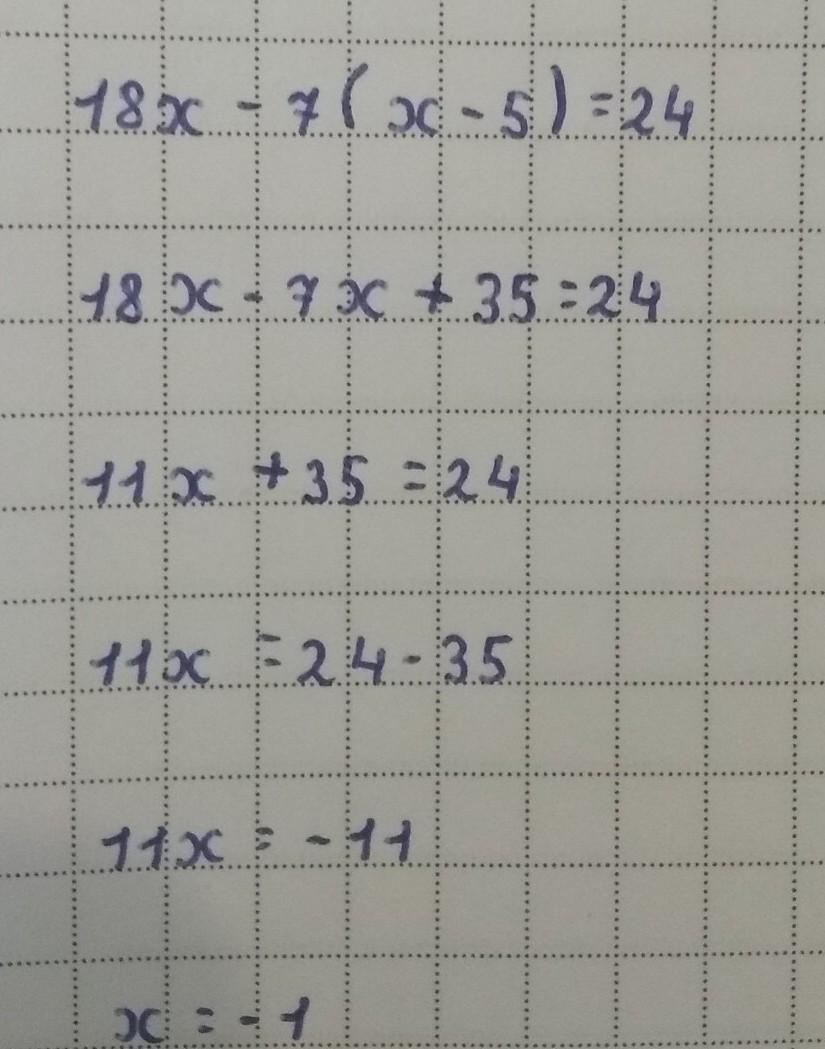 18x - 7(x - 5) = 24
18x - 7x + 35 = 24
11x + 35 = 24
11x = 24 - 35
11x = -11
x = -1